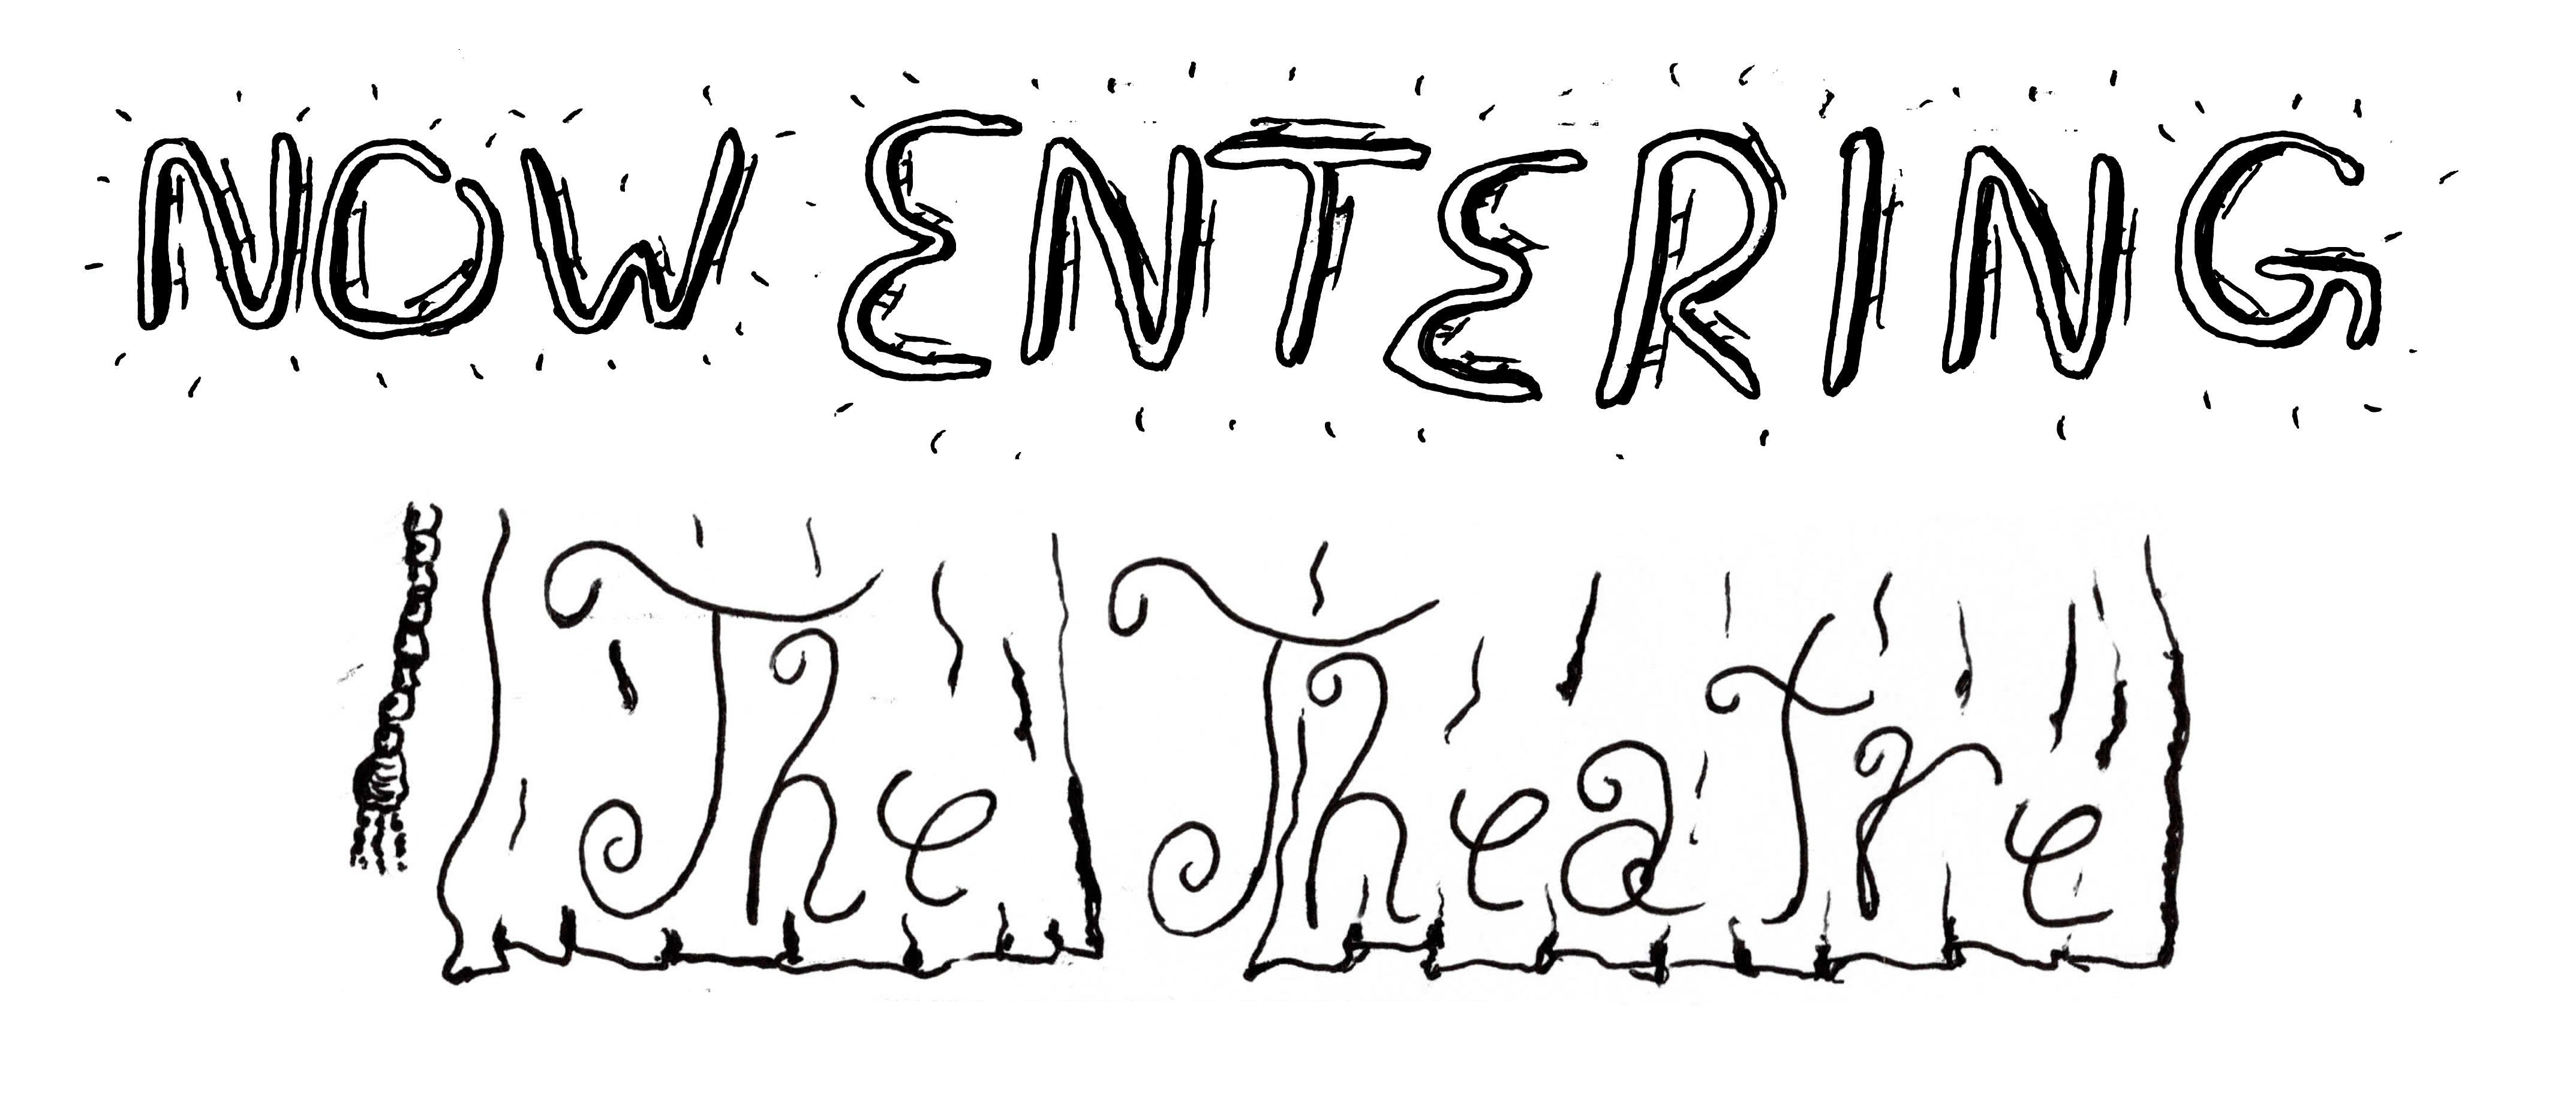 NOW ENTERING
The Theatre